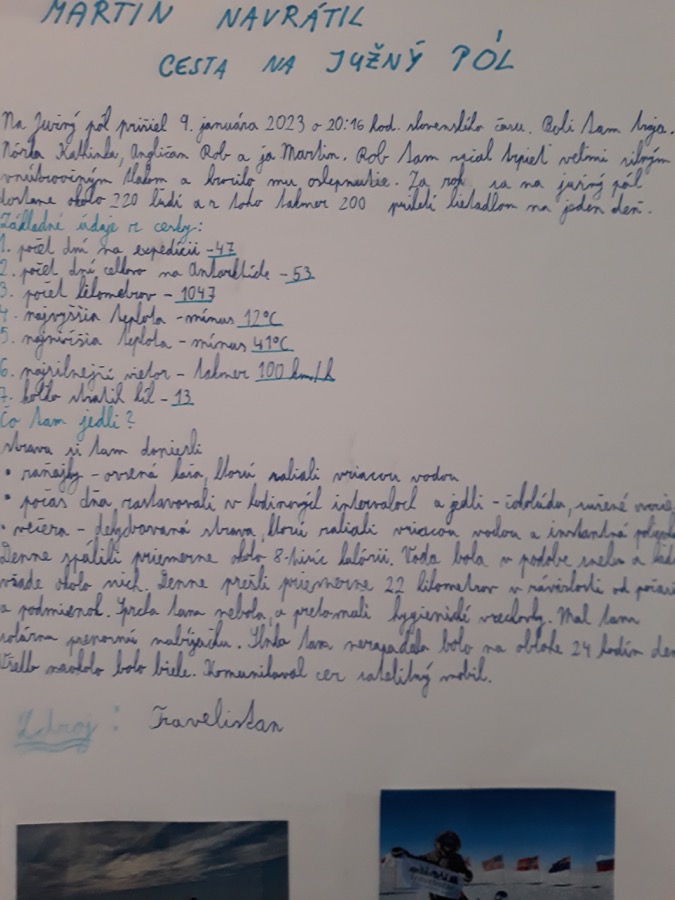 MARTIN NAVRÁTIL
CESTA NA JUŽNÝ PÓL
Na Južný pól prišiel 9. januára 2023 o 20:16 hod. slovenského času. Boli tam traja.
Nórka Kathinka, Angličan Rob a ja Martin. Rob tam začal trpieť veľmi silným
vnútroočným tlakom a hrozilo mu oslepnutie. Za rok sa na južný pól
dostane okolo 220 ľudí a z toho takmer 200 priletí lietadlom na jeden deň.
Základné údaje z cesty:
1. počet dní na expedícii - 47
2. počet dní celkovo na Antarktíde - 53
3. počet kilometrov - 1047
4. najvyššia teplota - mínus 12°C
5. najnižšia teplota - mínus 41°C
6. najsilnejší vietor - takmer 100 km/h
7. koľko stratil kíl - 13
Čo tam jedli?
strava si tam doniesli
• raňajky - ovsená kaša, ktorú zaliali vriacou vodou
• počas dňa zastavovali v hodinových intervaloch a jedli - čokoládu, sušené ovocie
• večera - dehydrovaná strava, ktorú zaliali vriacou vodou a instantná polievka
Denne spálili priemerne okolo 8-tisíc kalórií. Voda bola v podobe snehu a ľadu
všade okolo nich. Denne prešli priemerne 22 kilometrov v závislosti od počasia
a podmienok. Sprcha tam nebola, a pretomali hygienické vreckovky. Mal tam
solárna prenosnú nabíjačku. Slnko tam nezapadalo bolo na oblohe 24 hodín denne
Všetko naokolo bolo biele. Komunikoval cez satelitný mobil.
Zdroj: Travelistan